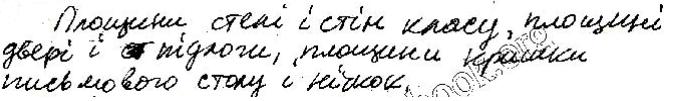 Площини стелі і стін класу, площині
двері і підлоги, площини кришки
письмового столу і ніжок.